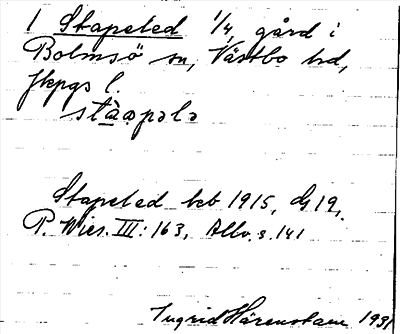 1 Stapeled 1/4, gård i
Bolmsö sn, Västbo hd,
Jkpgs l.
Stapeled keb 1915, dg 19,
P. Wies. III: 163, Allv. s. 141
Ingrid Härenstam 1931